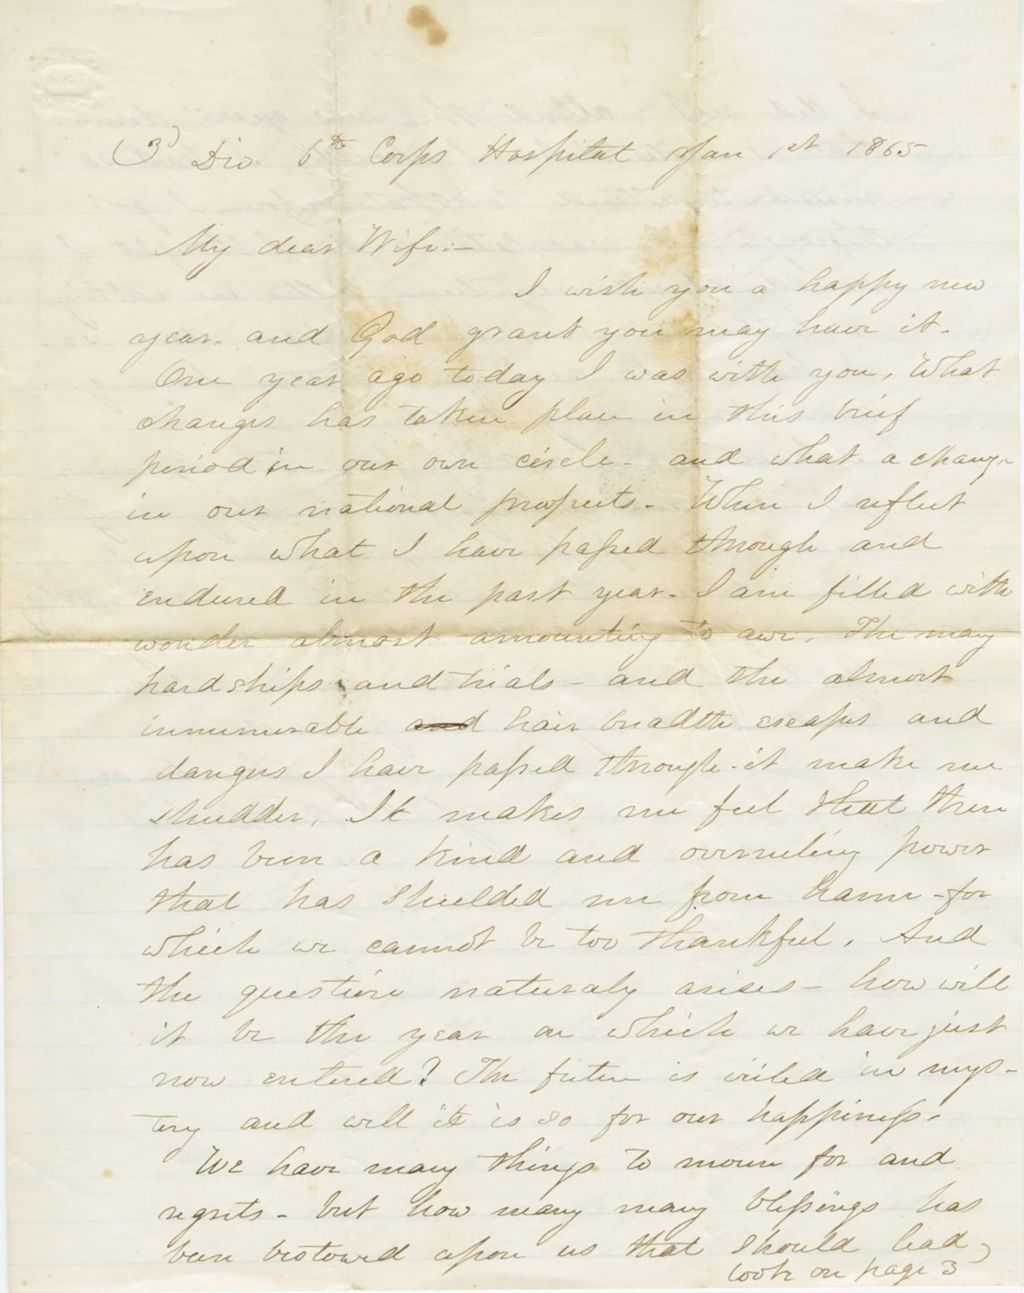 3d Div 6th Corps Hospital Jan 1st 1865
My dear Wife:-
I wish you a happy new
year. and God grant you may have it.
One year ago today I was with you, What
changes has taken place in this brief
period in our own circle - and what a change
in our national prospects - When I reflect
upon what I have passed through and
endured in the past year - I am filled with
wonder almost amounting to awe. The many
hardships and trials - and the almost
innumerable and hair breadth escapes and
dangers I have passed through - it make me
shudder, It makes me feel that there
has been a kind and overruling power
that has sheelded me from harm - for
which we cannot be too thankful. And
the question naturaly arises - how will
it be the year on which we have just
now entered? The future is veiled in mys-
tery and well it is so for our happiness.
We have many things to mourn for and
regrets - but how many many blessings has
been bestowed upon us that should lead
look on page 3